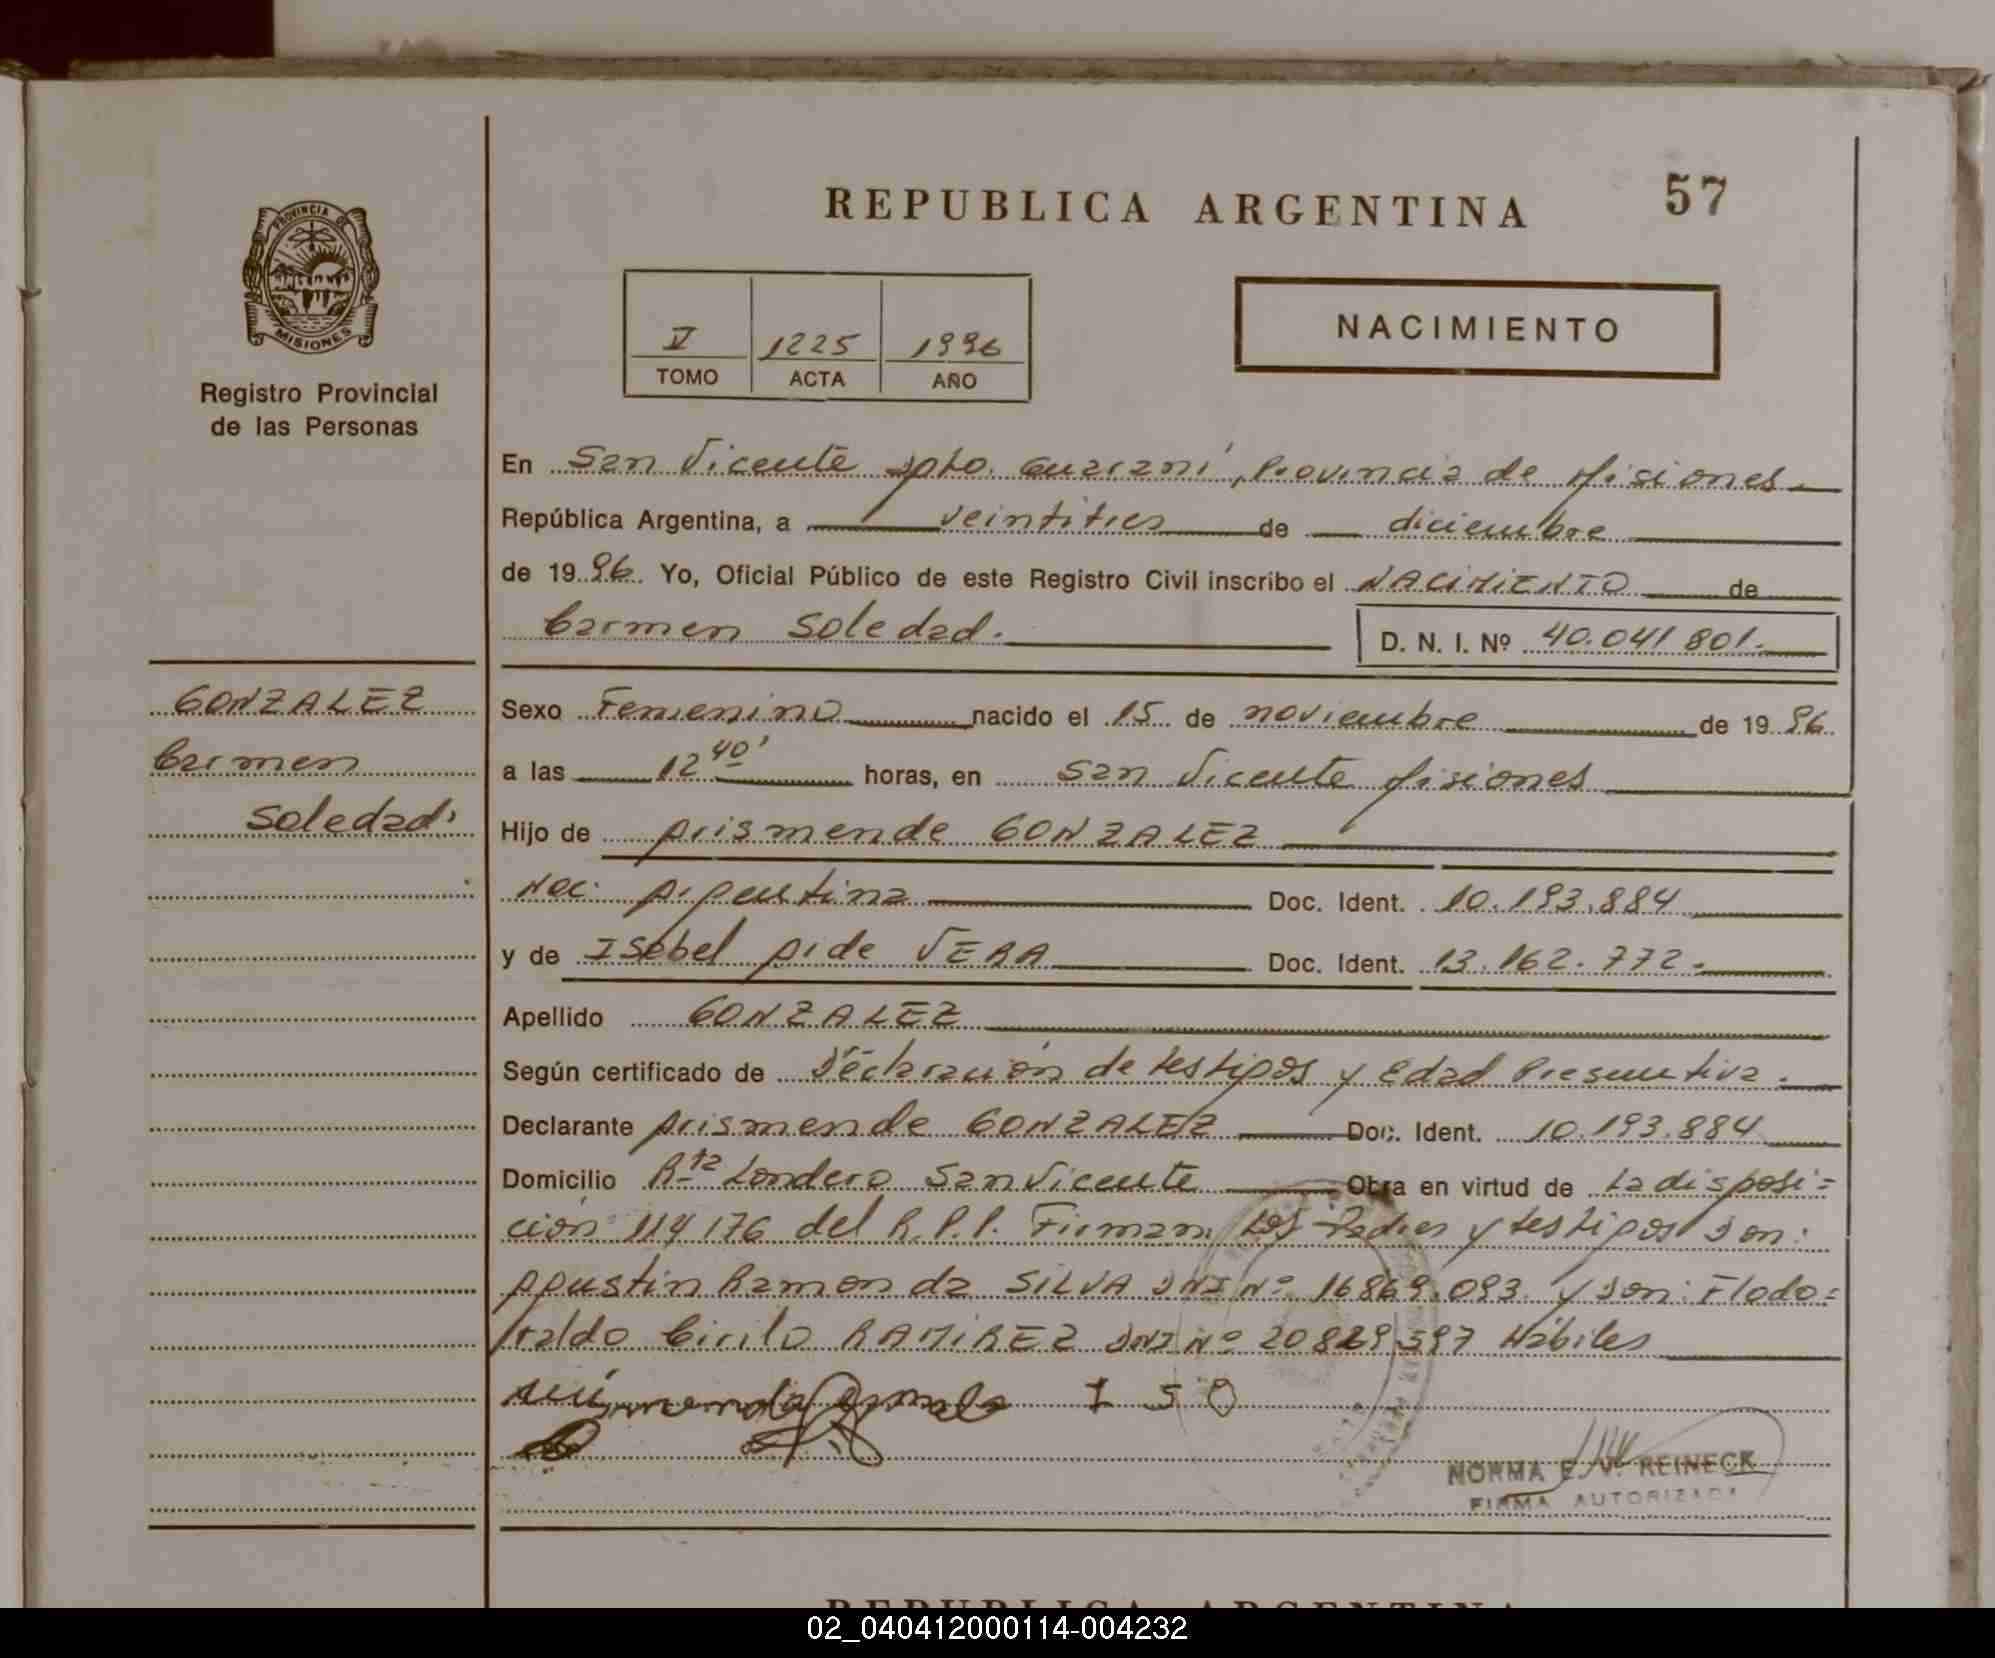 REPUBLICA ARGENTINA
57
PROVINCIA DE
MISIONES
Registro Provincial
de las Personas
V 1225 1996
TOMO ACTA AÑO
NACIMIENTO
En San Vicente Dpto. Guaraní, Provincia de Misiones.
República Argentina, a veintitres de diciembre
de 19 96. Yo, Oficial Público de este Registro Civil inscribo el NACIMIENTO de
Carmen Soledad.
D. N. I. Nº 40.041 801.
GONZALEZ
Carmen
Soledad.
Sexo Femenino nacido el 15 de noviembre de 19 96.
a las 12 40' horas, en San Vicente Misiones
Hijo de Arismende GONZALEZ
Nac. Argentina Doc. Ident. 10.193.884
y de Isabel Aide VERA Doc. Ident. 13.162.772.
Apellido GONZALEZ
Según certificado de Declaración de testigos y Edad Presuntiva.
Declarante Arismende GONZALEZ Doc. Ident. 10.193.884
Domicilio Rta Londero San Vicente Obra en virtud de La disposi=
ción 114/76 del R.P.P. Firman Los Padres y testigos Son:
Agustin Ramon da SILVA DNI Nº 16869.093. y Son: Flodo=
raldo Cirilo RAMIREZ DNI Nº 20829.597 Hábiles
I S O
NORMA E. V. REINECK
FIRMA AUTORIZADA
REPUBLICA ARGENTINA
02_040412000114-004232